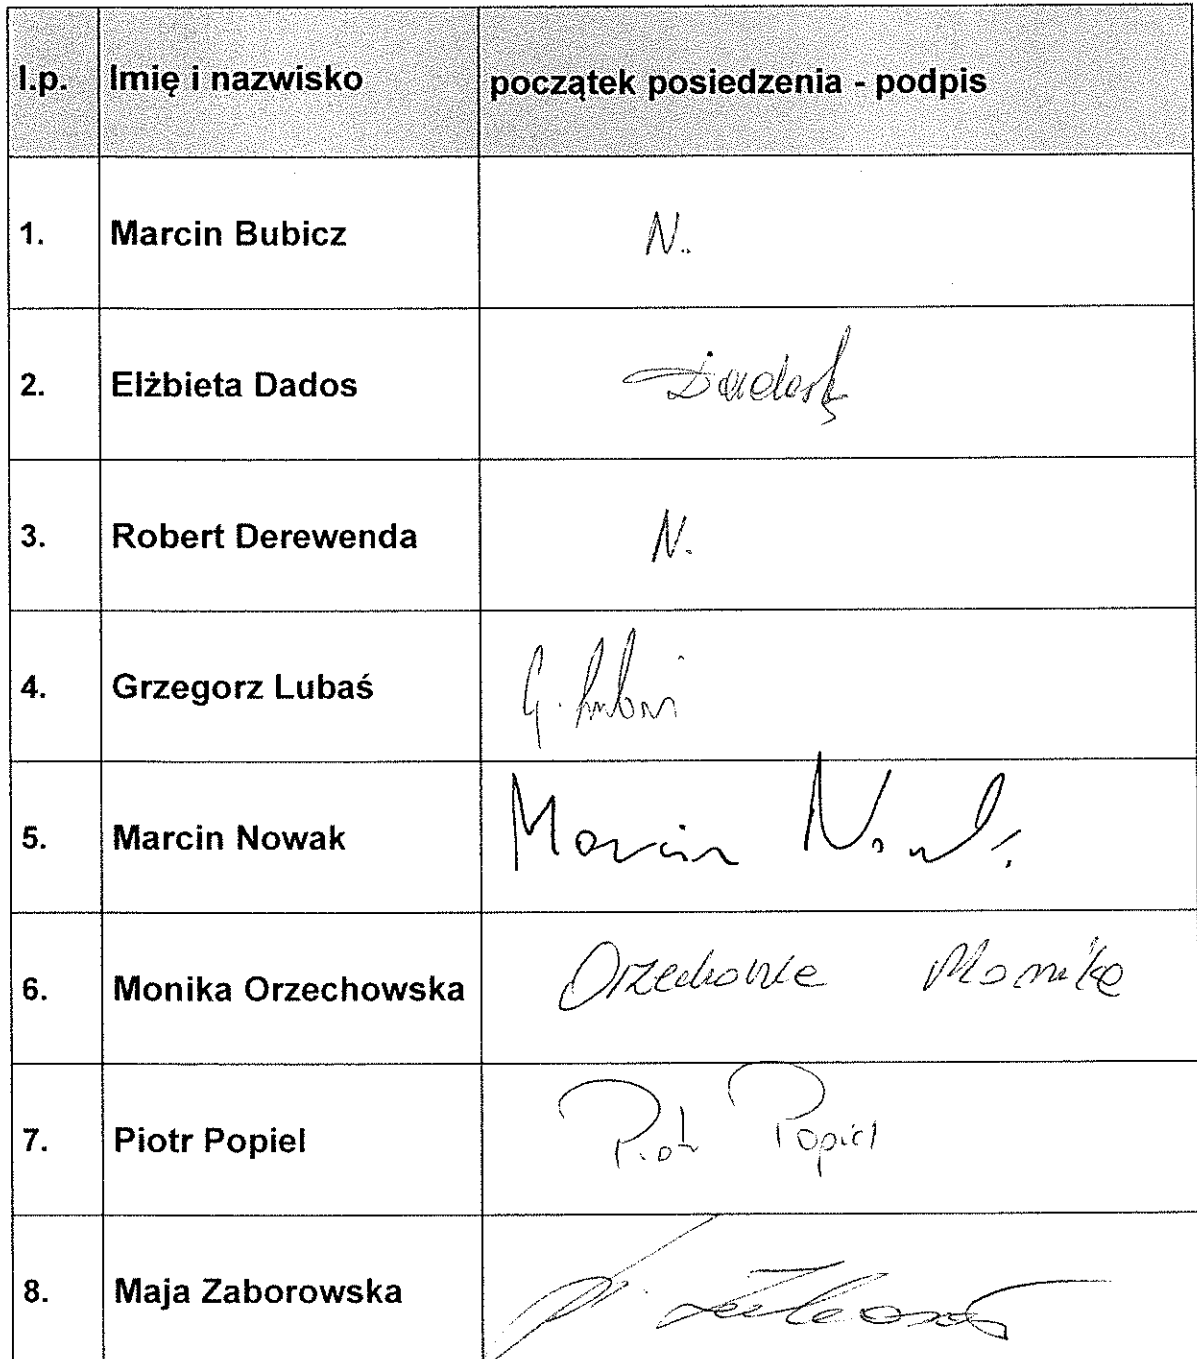 l.p. Imię i nazwisko początek posiedzenia - podpis
1. Marcin Bubicz N.
2. Elżbieta Dados
3. Robert Derewenda N.
4. Grzegorz Lubaś G. Lubaś
5. Marcin Nowak Marcin Nowak
6. Monika Orzechowska Orzechowska Monika
7. Piotr Popiel Piotr Popiel
8. Maja Zaborowska